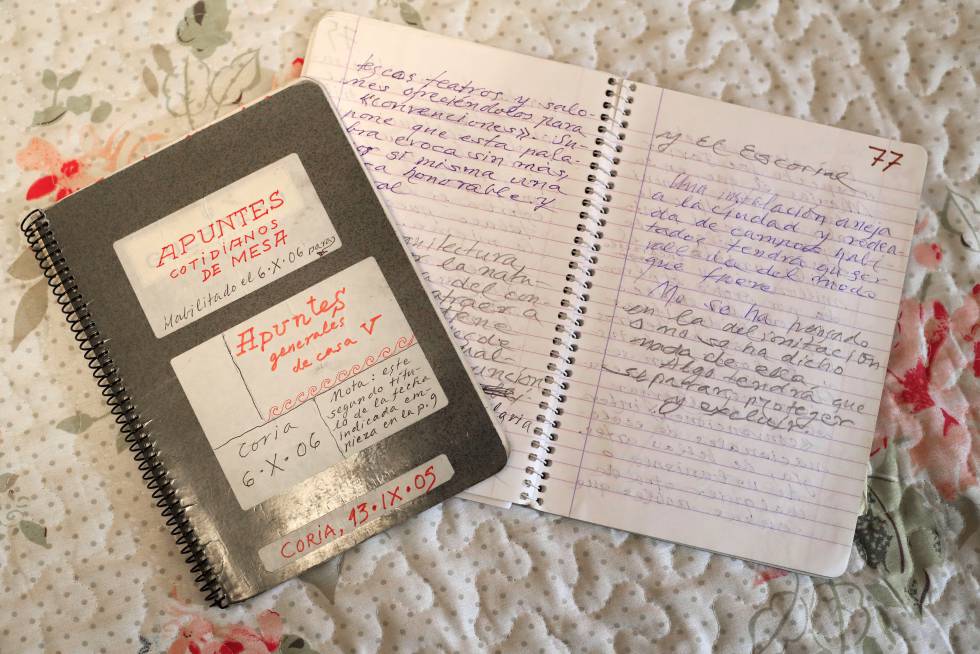 APUNTES
COTIDIANOS
DE MESA
Habilitado el 6·X·06 para
Apuntes
generales V
de casa
Coria
6·X·06
Nota: este
segundo títu-
lo de la fecha
indicada em-
pieza en la p. 9
CORIA, 13·IX·05
escos teatros y salo-
nes ofreciéndolos para
«convenciones». Su-
pone que esta pala-
bra evoca sin más,
si misma una
honorable y
77
y El Escorial
Una instalación aneja
a la ciudad y rodea-
da de campo
todos tendrá qu ser-
del modo
que fuere
No se ha pensado
en la delimitación
no se ha dicho
nada de esa
algo tendrá que
separar, proteger
y excluir